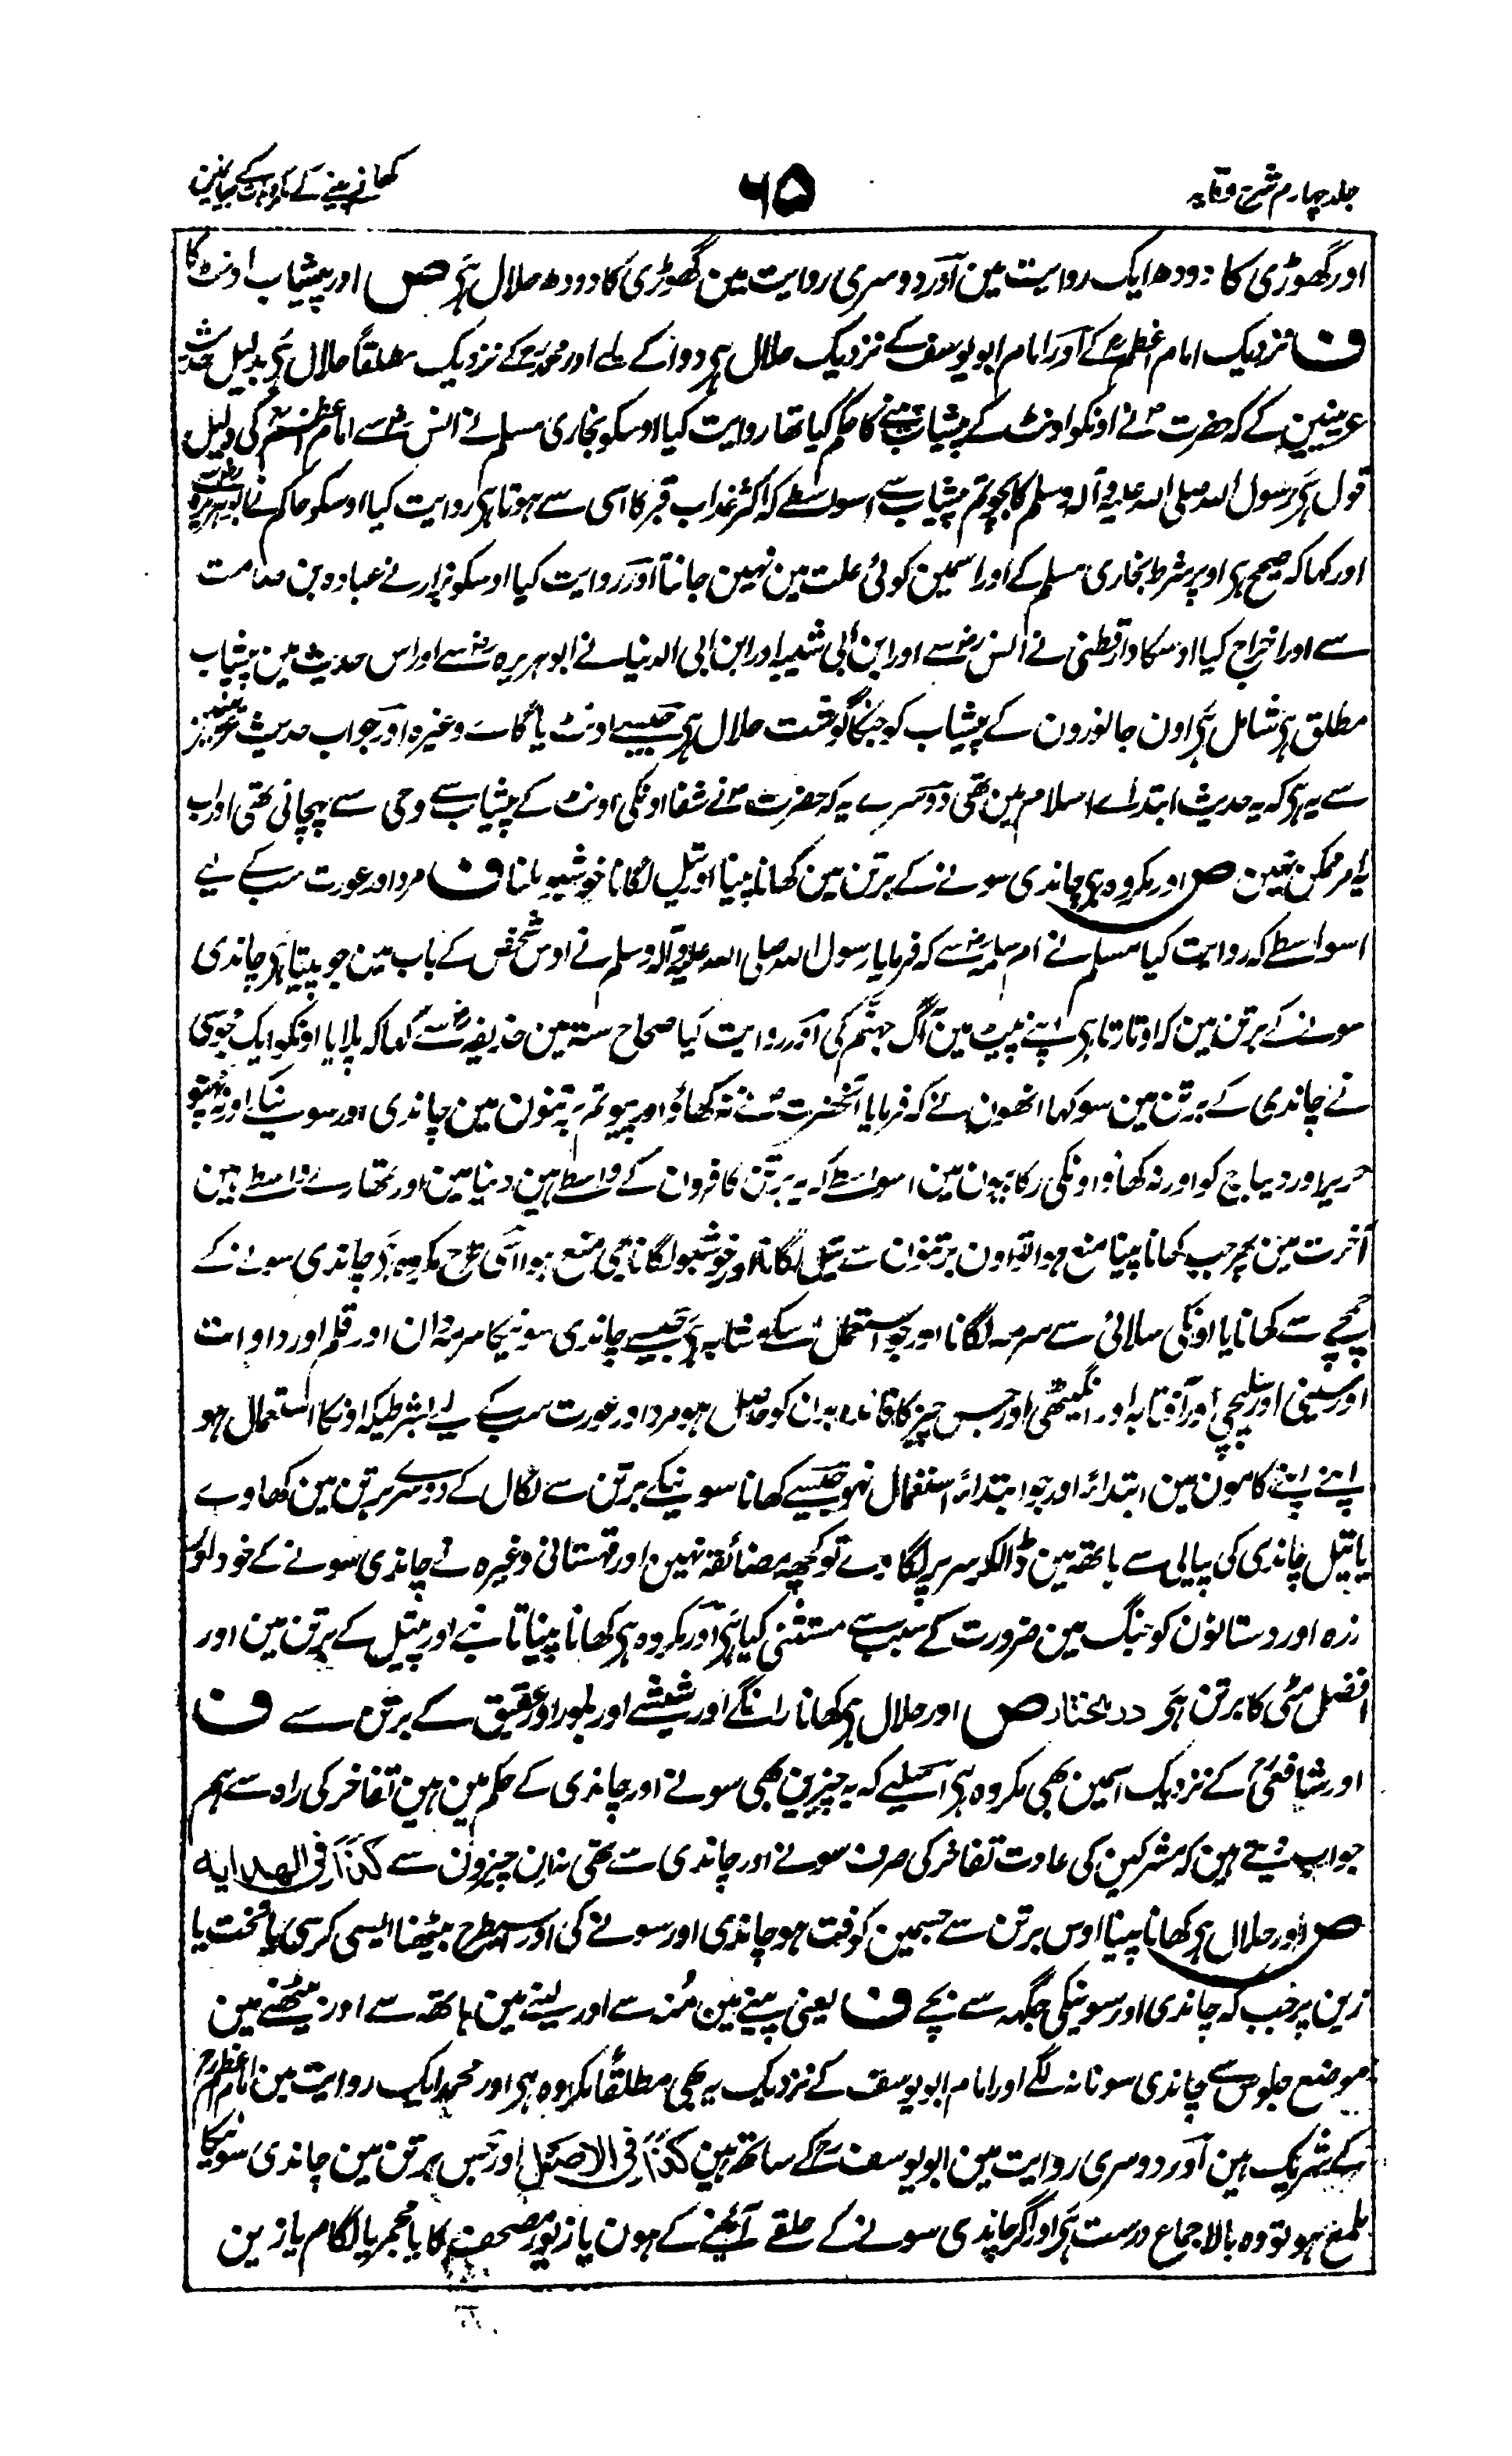 جلد چہارم شرح وقایہ
۶۵
کھانے پینے کے مکروہات کے بیانمین
اور گھوڑی کا دودھ ایک روایت مین اور دوسری روایت مین گھوڑی کا دودھ حلال ہی ص اور پیشاب اونٹ کا
ف نزدیک امام اعظم رح کے اور امام ابو یوسف کے نزدیک حلال ہی دوا کے لیے اور محمد رح کے نزدیک مطلقاً حلال ہی بدلیل حدیث
عرینیین کے کہ حضرت نے اونکو اونٹ کے پیشاب پینے کا حکم کیا تھا روایت کیا اوسکو بخاری مسلم نے انس رض سے امام اعظم رح کی دلیل
قول ہی رسول اللہ صلی اللہ علیہ وآلہ وسلم کا بچو تم پیشاب سے اسواسطے کہ اکثر عذاب قبر کا اسی سے ہوتا ہی روایت کیا اوسکو حاکم نے ابو ہریرہ رض سے
اور کہا کہ صحیح ہی اوپر شرط بخاری مسلم کے اور اسمین کوئی علت مین نہین جانتا اور روایت کیا اوسکو بزار نے عبادہ بن صامت
سے اور اخراج کیا اوسکا دارقطنی نے انس رض سے اور ابن ابی شیبہ اور ابن ابی الدنیا نے ابو ہریرہ رض سے اور اس حدیث مین پیشاب
مطلق ہی شامل ہی اون جانورون کے پیشاب کو جنکا گوشت حلال ہی جیسے اونٹ یا گاے وغیرہ اور جواب حدیث عرینیین
سے یہ ہی کہ یہ حدیث ابتداے اسلام مین تھی دوسرے یہ کہ حضرت نے شفا اونکی اونٹ کے پیشاب سے وحی سے پہچانی تھی اور اب
یہ امر ممکن نہین ص اور مکروہ ہی چاندی سونے کے برتن مین کھانا پینا اور تیل لگانا خوشبو ملنا ف مرد اور عورت سب کے لیے
اسواسطے کہ روایت کیا مسلم نے ام سلمہ رض سے کہ فرمایا رسول اللہ صلی اللہ علیہ وآلہ وسلم نے اوس شخص کے باب مین جو پیتا ہی چاندی
سونے کے برتن مین کہ اوتارتا ہی اپنے پیٹ مین آگ جہنم کی اور روایت کیا صحاح ستہ مین حذیفہ رض سے کہا کہ پلایا اونکو ایک مجوسی
نے چاندی کے برتن مین سو کہا انھون نے کہ فرمایا آنحضرت نے نہ کھاؤ اور پیو تم برتنون مین چاندی اور سونیکے اور نہ پہنو
حریر اور دیباج کو اور نہ کھاؤ اونکی رکابیون مین اسواسطے کہ یہ برتن کافرون کے واسطے ہین دنیا مین اور تمھارے واسطے ہین
آخرت مین پھر جب کھانا پینا منع ہوا تو اون برتنون سے تیل لگانا اور خوشبو لگانا بھی منع ہوا اسی طرح مکروہ ہی چاندی سونے کے
چمچے سے کھانا یا اونکی سلائی سے سرمہ لگانا اور جو استعمال اسکے مشابہ ہی جیسے چاندی سونیکا سرمہ دان اور قلم اور داوات
اور سینی اور سلیچی اور آفتابہ اور انگیٹھی اور جس چیز کا فائدہ بدن کو حاصل ہو مرد اور عورت سب کے لیے بشرطیکہ اونکا استعمال ہو
اپنے اپنے کامون مین ابتداءً اور جو ابتداءً استعمال نہو جیسے کھانا سونیکے برتن سے نکال کے دوسرے برتن مین کھاوے
یا تیل چاندی کی پیالی سے ہاتھ مین ڈالکر سر پر لگاوے تو کچھ مضائقہ نہین اور قہستانی وغیرہ نے چاندی سونے کے خود اور
زرہ اور دستانون کو جنگ مین ضرورت کے سبب سے مستثنی کیا ہی اور مکروہ ہی کھانا پینا تانبے اور پیتل کے برتن مین اور
افضل مٹی کا برتن ہی در مختار ص اور حلال ہی کھانا رانگے اور شیشے اور بلور اور عقیق کے برتن سے ف
اور شافعی رح کے نزدیک اسمین بھی مکروہ ہی اسلیے کہ یہ چیزین بھی سونے اور چاندی کے حکم مین ہین تفاخر کی راہ سے ہم
جواب دیتے ہین کہ مشرکین کی عادت تفاخر کی صرف سونے اور چاندی سے تھی نہ ان چیزون سے کذا فی الهدایه
ص اور حلال ہی کھانا پینا اوس برتن سے جسمین کوفت ہو چاندی اور سونے کی اور اسیطرح بیٹھنا ایسی کرسی یا تخت یا
زین پر جب کہ چاندی اور سونیکی جگہہ سے بچے ف یعنی پینے مین مُنہ سے اور لینے مین ہاتھ سے اور بیٹھنے مین
موضع جلوس سے چاندی سونا نہ لگے اور امام ابو یوسف کے نزدیک یہ بھی مطلقاً مکروہ ہی اور محمد ایک روایت مین امام اعظم رح
کے شریک ہین اور دوسری روایت مین ابو یوسف رح کے ساتھ ہین کذا فی الاصل اور جس برتن مین چاندی سونیکا
ملمع ہو تو وہ بالاجماع درست ہی اور اگر چاندی سونے کے حلقے آئینے کے ہون یا زیور مصحف کا یا مجمر یا لگام یا زین